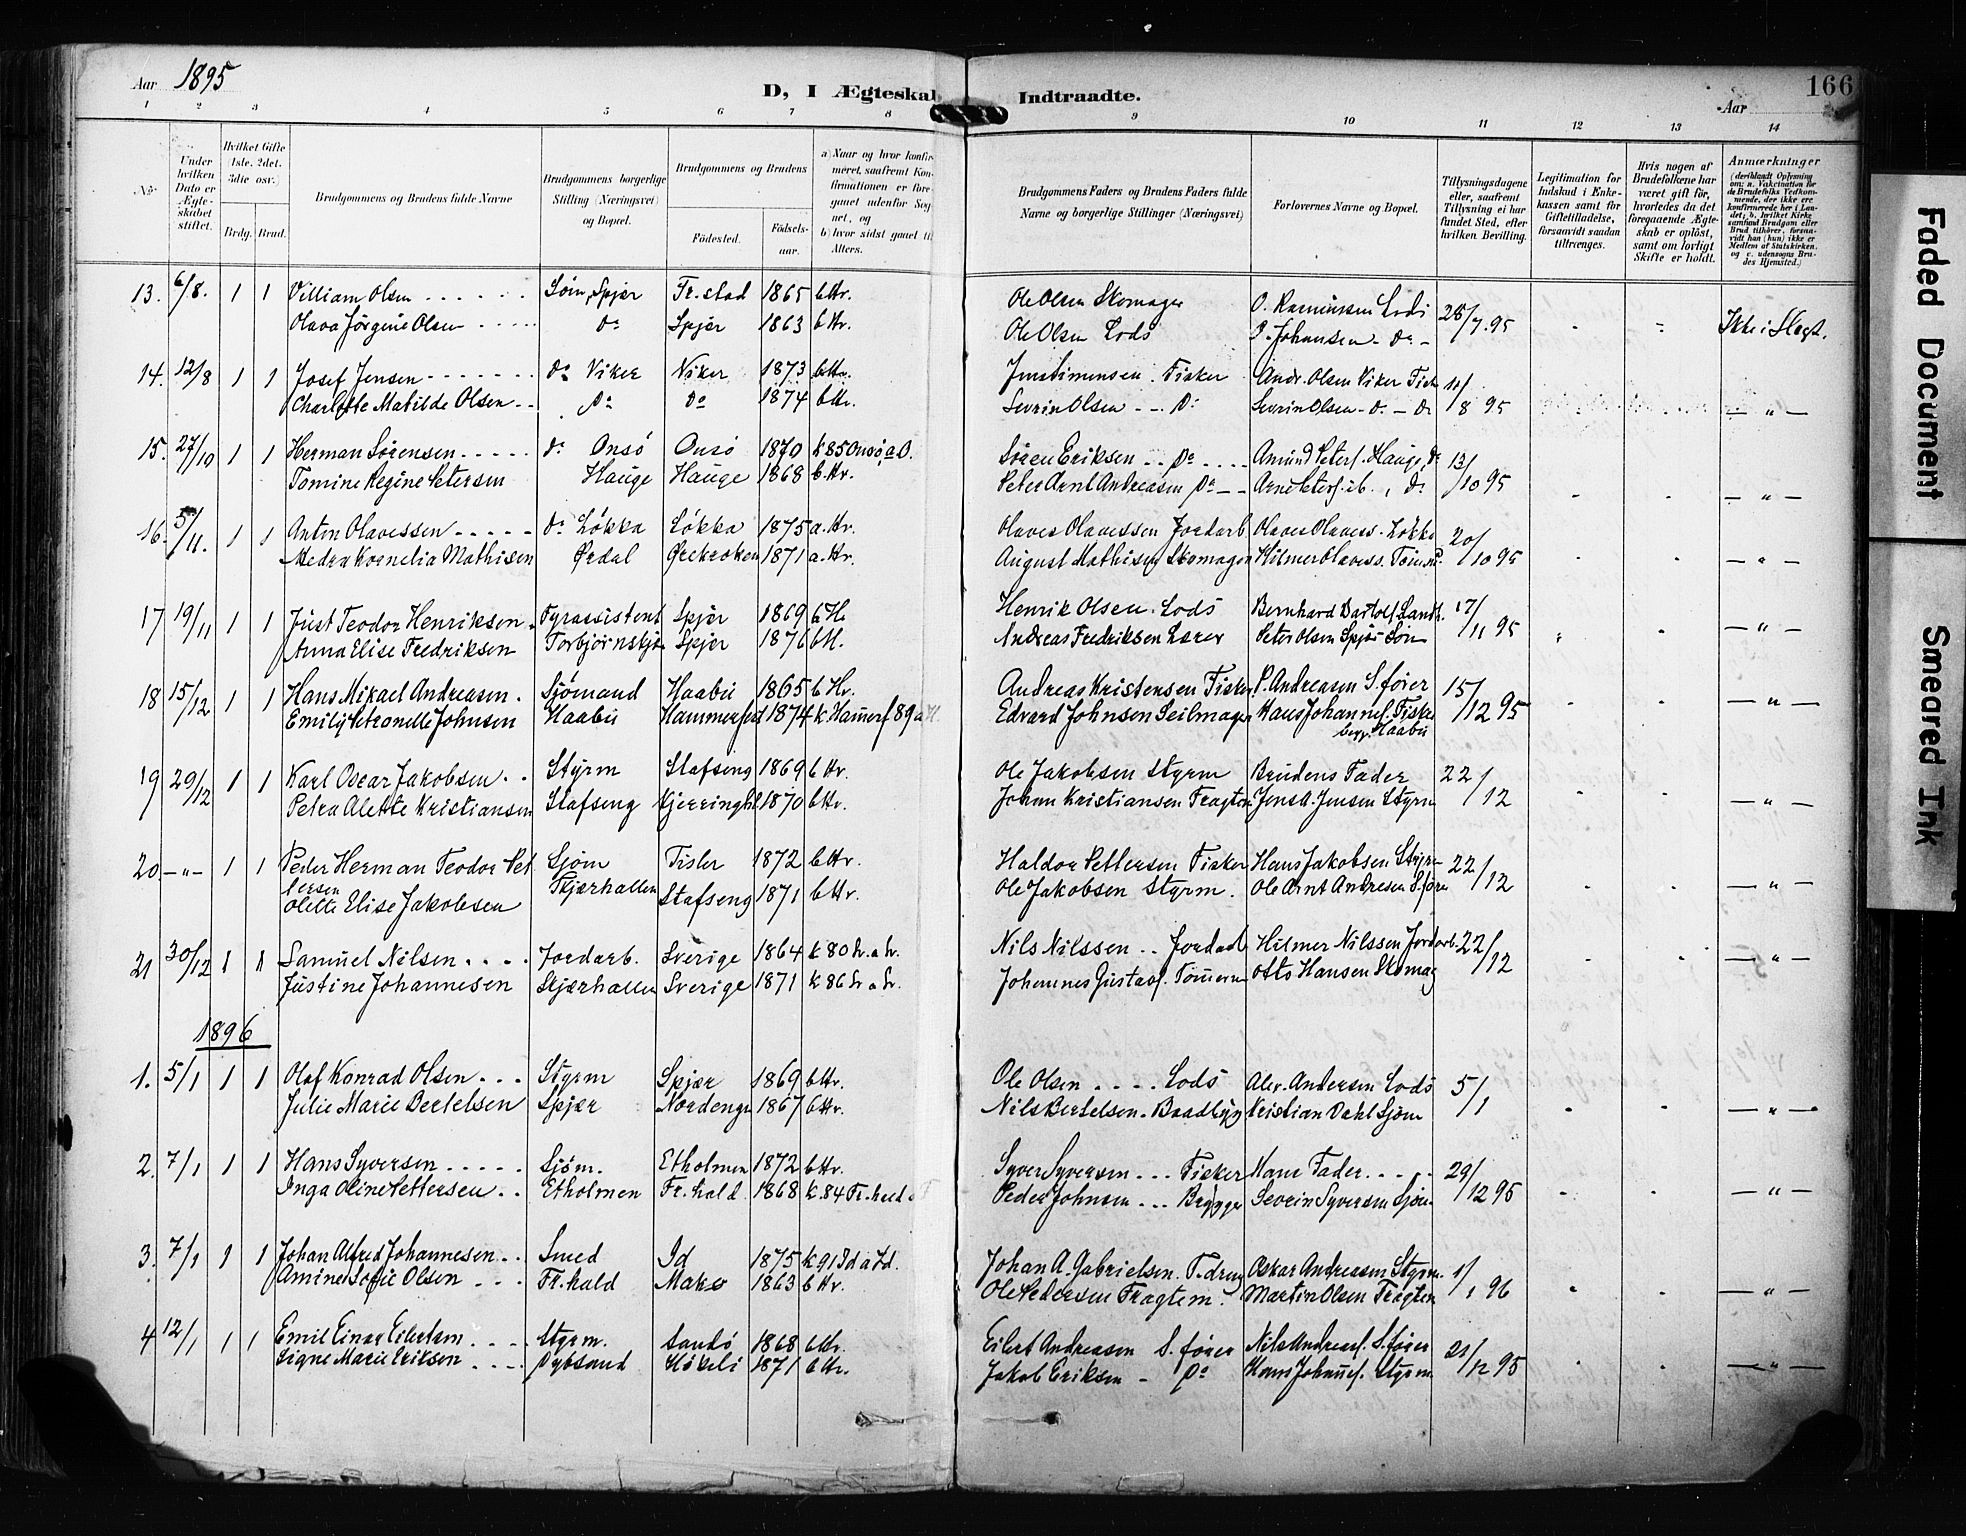 Aar 1895
D, I Ægteskab Indtraadte.
Aar
166
1 2 3 4 5 6 7 8 9 10 11 12 13 14
Nr.
Under hvilken Dato er Ægteskabet stiftet.
Hvilket Gifte (1ste, 2det, 3die osv.)
Brdg. Brud.
Brudgommens og Brudens fulde Navne
Brudgommens borgerlige Stilling (Næringsvei) og Bopæl.
Brudgommens og Brudens
Fødested.
Fødselsaar.
a) Naar og hvor konfirmeret, saafremt Konfirmationen er foregaaet udenfor Sognet, og
b) hvor sidst gaaet til Alters.
Brudgommens Faders og Brudens Faders fulde Navne og borgerlige Stillinger (Næringsvei)
Forlovernes Navne og Bopæl.
Tillysningsdagene eller, saafremt Tillysning ei har fundet Sted, efter hvilken Bevilling.
Legitimation for Indskud i Enkekassen samt for Giftetilladelse, forsaavidt saadan tiltrænges.
Hvis nogen af Brudefolkene har været gift før, hvorledes da det foregaaende Ægteskab er opløst, samt om lovligt Skifte er holdt.
Anmærkninger
(deriblandt Oplysning om: a. Vakcination for de Brudefolks Vedkommende, der ikke ere konfirmerede her i Landet; b. hvilket Kirkesamfund Brudgom eller Brud tilhører, forsaavidt han (hun) ikke er Medlem af Statskirken, og c. udensogns Brudes Hjemsted.)
13. 6/8. 1 1 Villiam Olsen Søm, Spjær Fr.stad 1865 b Hv. Ole Olsen Skomager O. Rasmussen Lods 28/7.95 Ikke i Slegt.
Olava Jørgine Olsen do Spjær 1863 b Hv. Ole Olsen Lods O. Johansen - do -
14. 12/8 1 1 Josef Jensen do Viker Viker 1873 b Hv. Jens Simensen Fisker Andr. Olsen Viker Fisk 11/8 95
Charlotte Matilde Olsen do do 1874 b Hv. Severin Olsen - - do Severin Olsen - d. - do — " —
15. 27/10 1 1 Herman Sørensen do Onsö Onsö 1870 k 85 Onsö, a O. Søren Eriksen do Amund Peters. Hauge, do 13/10 95
Tomine Regine Petersen Hauge Hauge 1868 b Hv. Peter Arnt Andreasen do Arne Peters. ib., do — " —
16. 5/11. 1 1 Anton Olavessen do Løkka Løkka 1875 a. Hv. Olaves Olavessen Jordarb. Olaves Olavess. Løkka 20/10 95
Medea Kornelia Mathisen Ørdal Ørekroken 1871 a. Hv. August Mathisen Skomager Hilmer Olavess. Tømmd. — " —
17 19/11 1 1 Just Teodor Henriksen Fyrassistent Spjær 1869 b H. Henrik Olsen Lods Bernhard Bartolf. Landh. 17/11 95
Anna Elise Fredriksen Torbjørnskjær Spjær 1876 b H. Andreas Fredriksen Lærer Peter Olsen Spjær Søm — " —
18 15/12 1 1 Hans Mikael Andreasen. Sjømand Haabu 1865 b Hv. Andreas Kristensen Fisker P. Andreasen S.fører 15/12 95
Emily Petronelle Johnsen Haabu Hammerfest 1874 k Hamerf 89 a H. Edvard Johnsen Seilmager Hans Johannes. Fisker begge Haabu — " —
19 29/12 1 1 Karl Oscar Jakobsen Styrm Stafseng 1869 b Hv. Ole Jakobsen Styrm Brudens Fader 22/12
Petra Alette Kristiansen Stafseng Kjerringh. 1870 b Hv. Johan Kristiansen Fragtem Jens A. Jensen Styrm — " —
20. — " — 1 1 Peder Herman Teodor Pettersen Sjøm Tisler 1872 b Hv. Haldor Pettersen Fisker Hans Jakobsen Styrm 22/12
Olette Elise Jakobsen Skjærhallen Stafseng 1871 b Hv. Ole Jakobsen Styrm. Ole Arnt Andresen S.fører — " —
21 30/12 1 1 Samuel Nilsen Jordarb. Sverige 1864 k 80 Sv. a Sv. Nils Nilssen Jordarb Hilmer Nilssen Jordarb. 22/12
Justine Johannesen Skjærhallen Sverige 1871 k 86 Sv. a Sv. Johannes Gustavs. Tømerm Otto Hansen Skomag — " —
1896
1. 5/1 1 1 Olaf Konrad Olsen Styrm Spjær 1869 b Hv. Ole Olsen Lods Alex. Andersen Lods 5/1
Julie Marie Bertelsen Spjær Nordengn 1867 b Hv. Nils Bertelsen. Baadbyg Kristian Dahl Sjøm — " —
2. 7/1 1 1 Hans Syversen Sjøm. Etholmen 1872 b Hv. Syver Syversen Fisker Hans Fader 29/12 95
Inga Oline Pettersen Etholmen Fr.hald 1868 k. 84 Fr.hald a F Peder Johnsen Brygger Severin Syversen Sjøm — " —
3. 7/1 1 1 Johan Alfred Johannesen Smed Id 1875 k 91 Id a Id. Johan A. Gabrielsen. T.dreng Oskar Andreasen Styrm. 1/1 96
Amine Sofie Olsen Fr.hald Makø 1863 b Hv. Ole Pedersen Fragtem. Martin Olsen Fragtem — " —
4 12/1 1 1 Emil Einar Eilertsen Styrm. Sandö 1868 b Hv. Eilert Andreasen S.fører Nils Andreas. S.fører 21/12 95
Signe Marie Eriksen Dybsund Hökeli 1871 b Hv. Jakob Eriksen - do Hans Johans. Styrm — " —
Faded Document
Smeared Ink